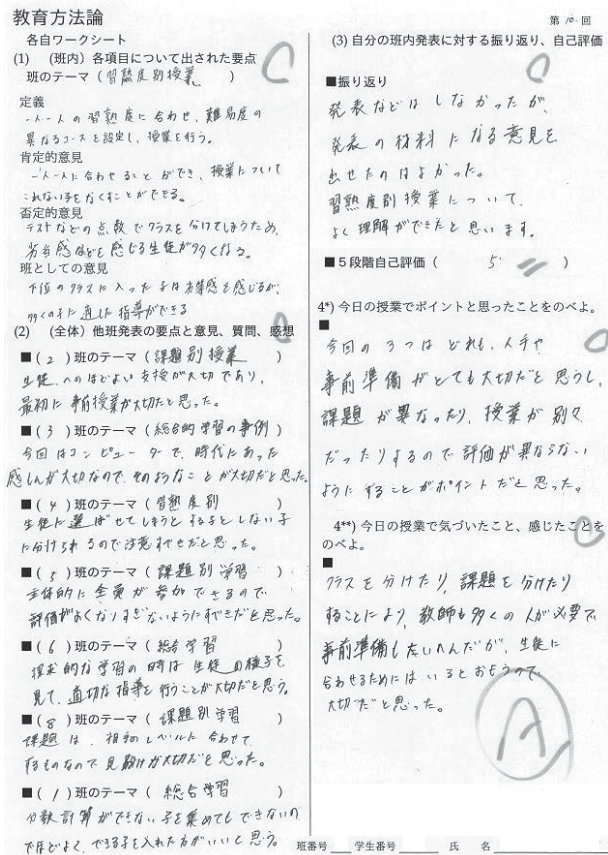 教育方法論
第 10 回
各自ワークシート
(1) (班内）各項目について出された要点
班のテーマ（習熟度別授業 ）
定義
一人一人の習熟度に合わせ、難易度の
異なるコースを設定し、授業を行う。
肯定的意見
一人一人に合わせることができ、授業について
これない子をなくすことができる。
否定的意見
テストなどの点数でクラスを分けてしまうため、
劣等感などを感じる生徒が多くなる。
班としての意見
下位のクラスに入った子は劣等感を感じるが、
多くの子に適した指導ができる
(2) （全体）他班発表の要点と意見、質問、感想
■（ 2 ）班のテーマ（ 課題別授業 ）
生徒へのほどよい支援が大切であり、
最初に事前授業が大切だと思った。
■（ 3 ）班のテーマ（ 総合的学習の事例 ）
今回はコンピューターで、時代にあった
感しんが大切なので、そのようなことが大切だと思った。
■（ 4 ）班のテーマ（ 習熟度別 ）
生徒に選ばせてしまうとする子としない子
に分けられるので注意すべきだと思った。
■（ 5 ）班のテーマ（ 課題別学習 ）
主体的に全員が参加できるので、
評価がよくなりすぎないようにすべきだと思った。
■（ 6 ）班のテーマ（ 総合学習 ）
探求的な学習の時は生徒の様子を
見て、適切な指導を行うことが大切だと思う。
■（ 8 ）班のテーマ（ 課題別学習 ）
課題は、相手のレベルに合わせて
するものなので見分けが大切だと思った。
■（ 1 ）班のテーマ（ 総合学習 ）
分数計算ができない子を集めてもできないの
でほどよく、できる子を入れた方がいいと思う。
(3) 自分の班内発表に対する振り返り、自己評価
■振り返り
発表などはしなかったが、
発表の材料になる意見を
出せたのはよかった。
習熟度別授業について、
よく理解ができたと思います。
■５段階自己評価（ 5 ）
4*) 今日の授業でポイントと思ったことをのべよ。
■
今回の3つはどれも、人手や
事前準備がとても大切だと思うし、
課題が異なったり、授業が別々
だったりするので評価が異ならない
ようにすることがポイントだと思った。
4**) 今日の授業で気づいたこと、感じたことを
のべよ。
■
クラスを分けたり、課題を分けたり
することにより、教師も多くの人が必要で、
事前準備もたいへんだが、生徒に
合わせるためにはいるとおもうので
大切だと思った。
A
班番号 学生番号 氏 名